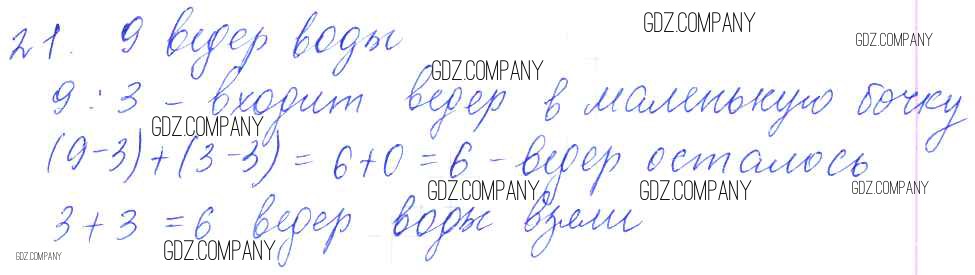 21. 9 ведер воды
9 : 3 - входит ведер в маленькую бочку
(9-3)+(3-3) = 6+0 = 6 - ведер осталось
3+3 = 6 ведер воды взяли
GDZ.COMPANY
GDZ.COMPANY
GDZ.COMPANY
GDZ.COMPANY
GDZ.COMPANY
GDZ.COMPANY
GDZ.COMPANY
GDZ.COMPANY
GDZ.COMPANY